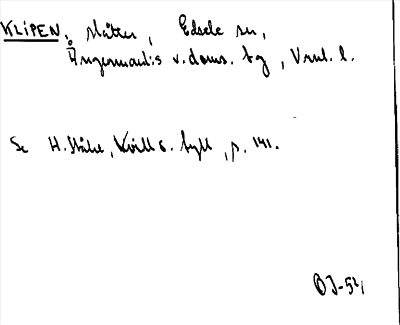 KLIPEN, slåtter, Edsele sn,
Ångermanl:s v. doms. tg, Vnrl. l.
Se H. Ståhl, Kvill o. tyll, p. 141.
OJ-54